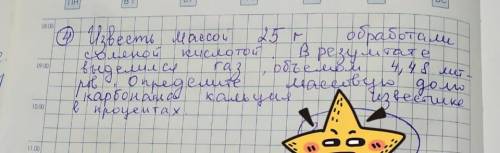 ④ Известь массой 25 г обработали
соляной кислотой. В результате
выделился газ, объёмом 4,48 лит-
ра. Определите массовую долю
карбоната кальция известике
в процентах.
09.00
10.00
11.00